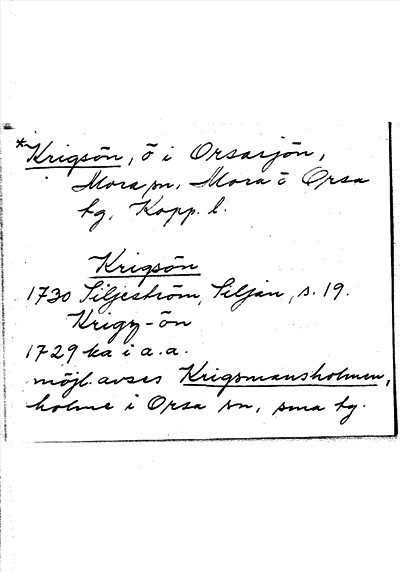 *Krigsön, ö i Orsasjön,
Mora sn, Mora o Orsa
tg, Kopp. l.
Krigsön
1730 Siljeström, Siljan, s. 19.
Krigz-ön
1729 ka i a.a.
möjl. avses Krigsmansholmen,
holme i Orsa sn, sma tg.